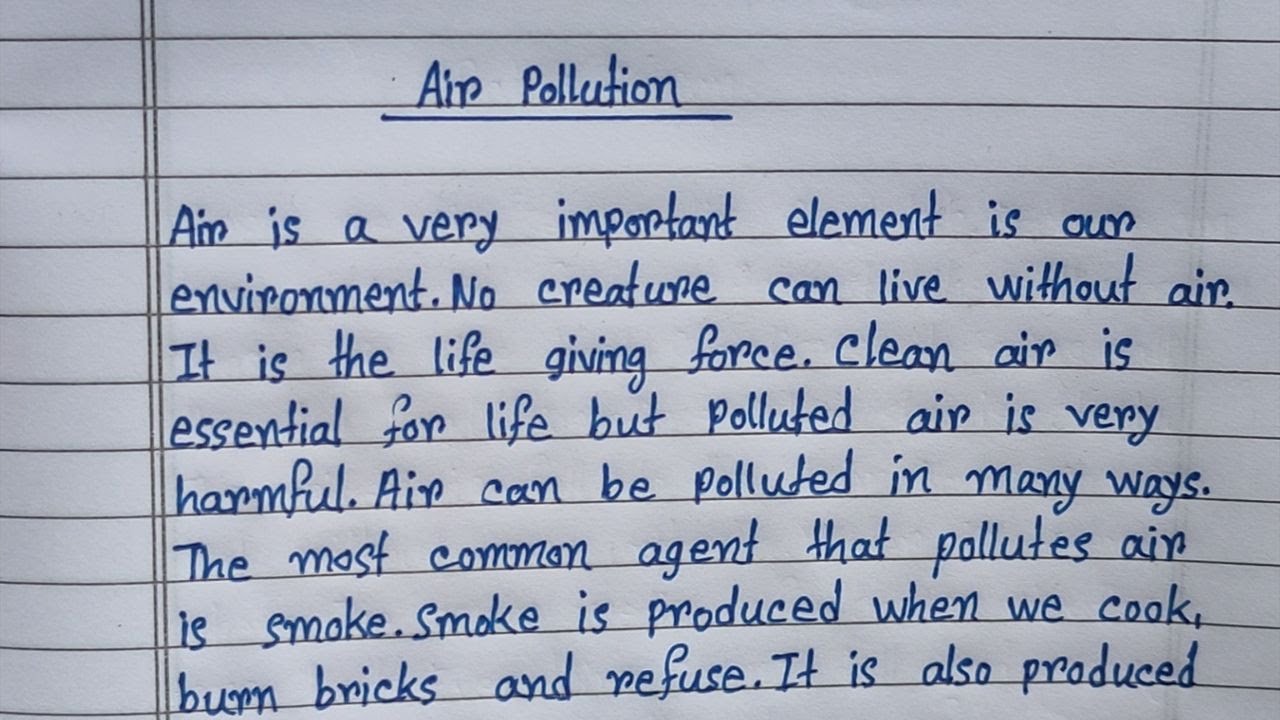 Air Pollution
Air is a very important element is our
environment. No creature can live without air.
It is the life giving force. Clean air is
essential for life but polluted air is very
harmful. Air can be polluted in many ways.
The most common agent that pollutes air
is smoke. Smoke is produced when we cook,
burn bricks and refuse. It is also produced